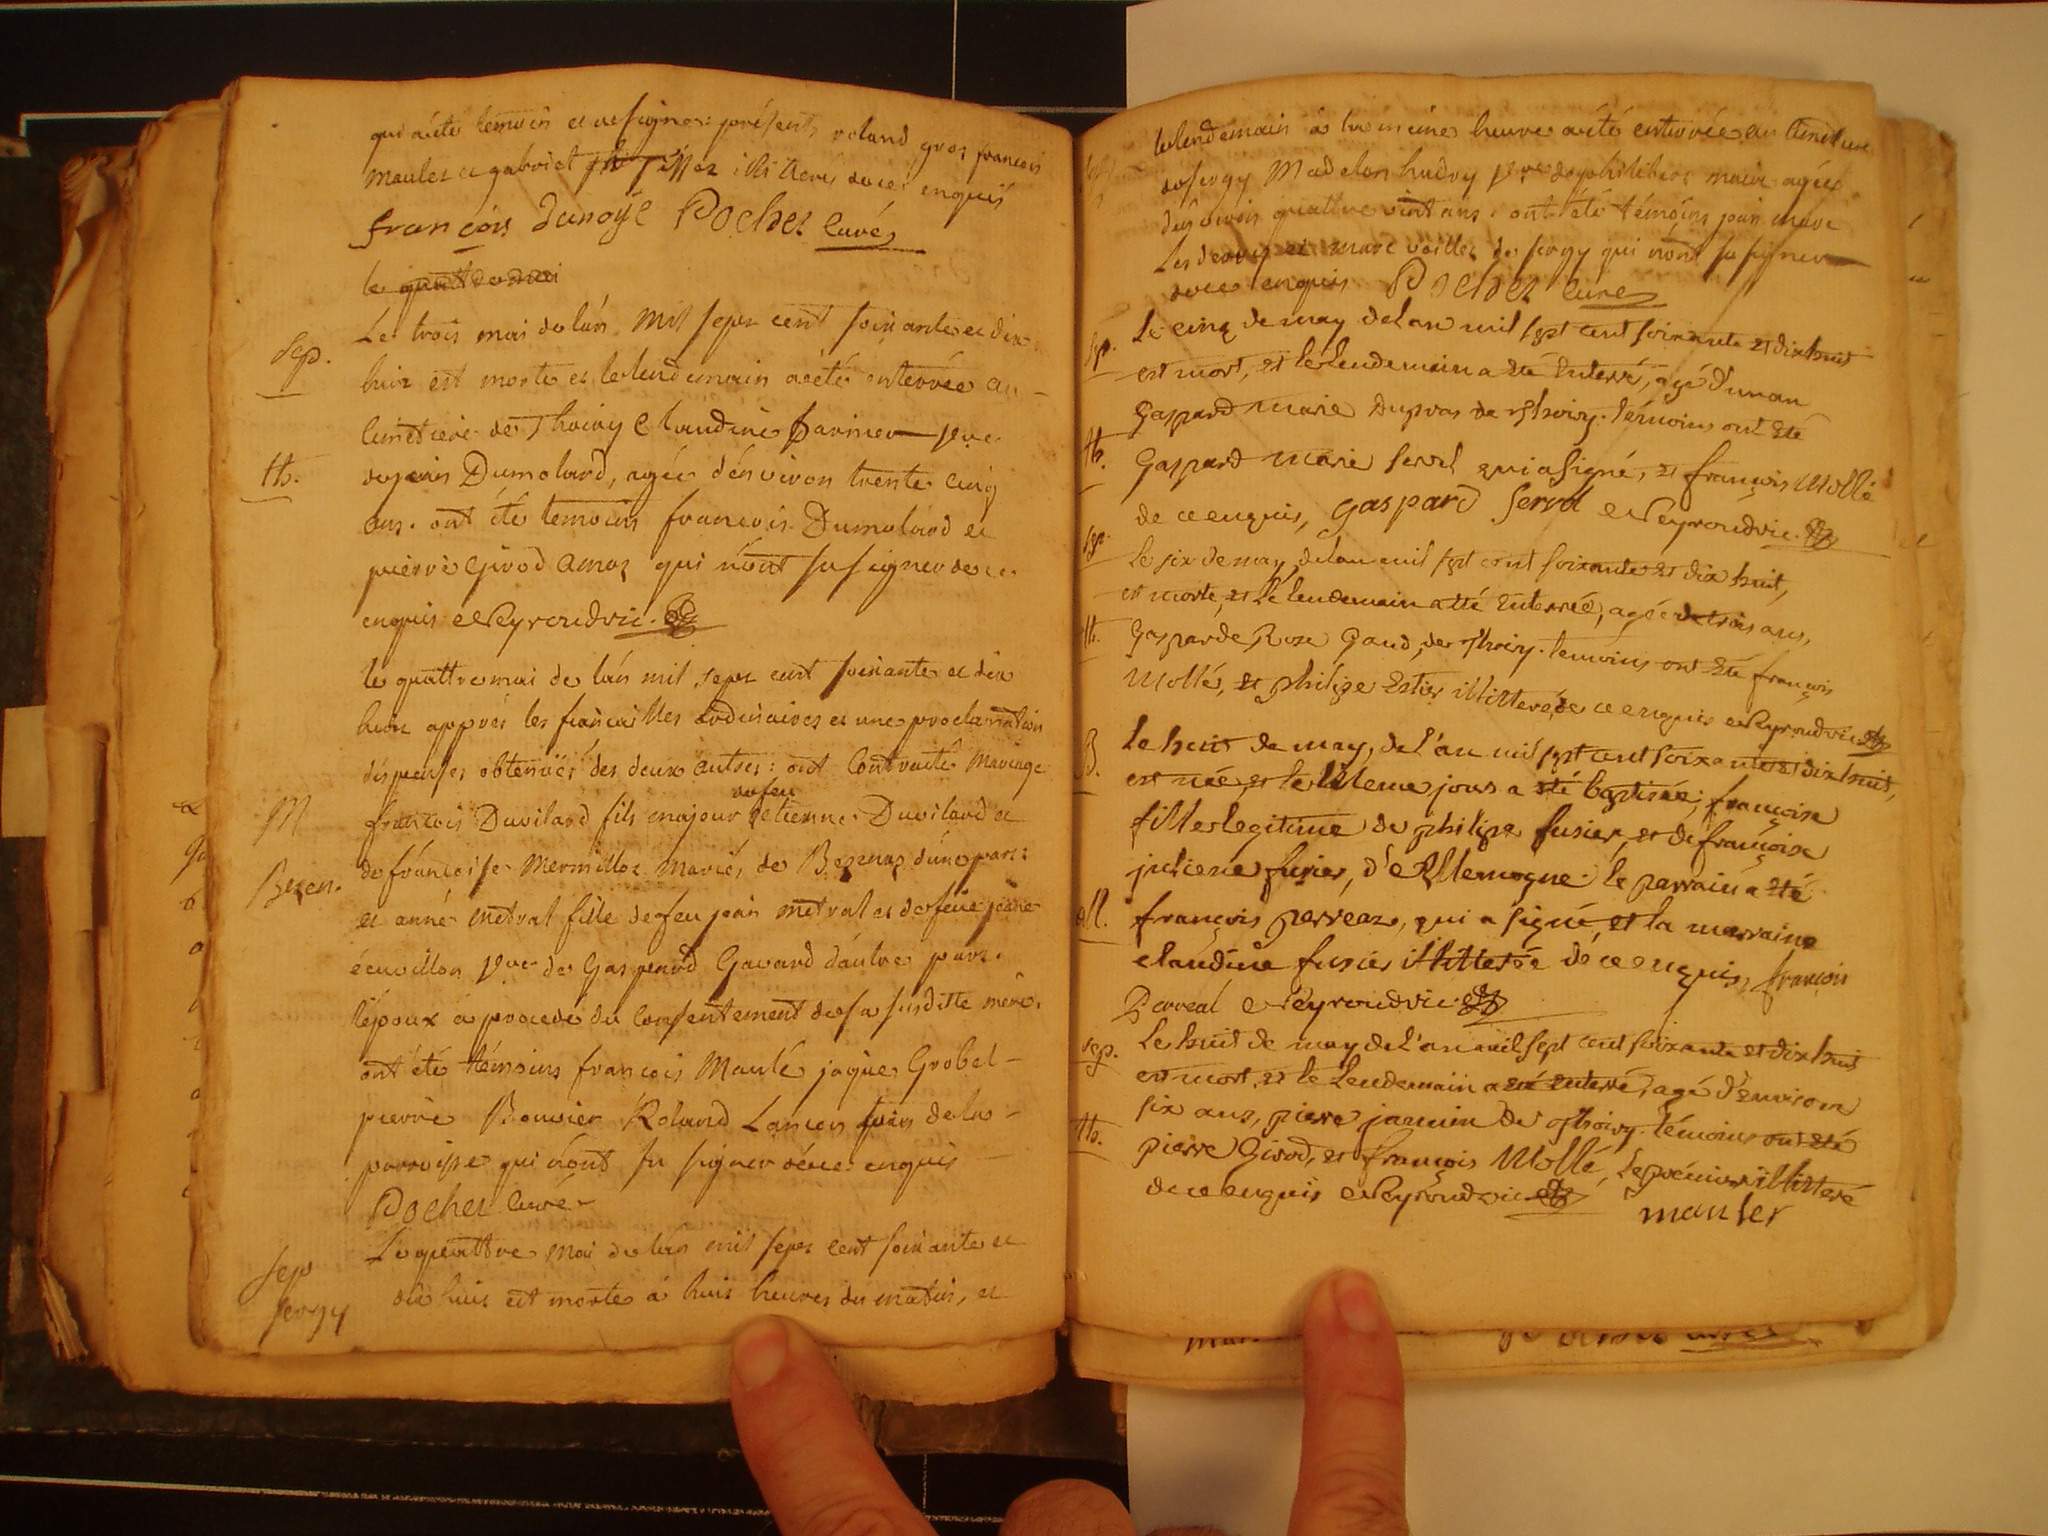 qui a été temoin et a signe: présents roland gros françois
maulez et gabriel pissez illiterés de ce enquis
françois dunoyé Pochet curé
le
Sep.
Le trois mai de lán mil sept cent soixante et dix
huit est morte et le lendemain a eté enterrée au
cimetiere de Thoiry Claudine parnier
th.
de jean Dumolard, agée dénviron trente cinq
ans. ont été temoins francois Dumolard et
pierre Girod amoz qui n'ont su signer de ce
enquis Peyroudvic.
le quattre mai de lán mil sept cent soixante et dix
huit apprés les fiançailles ordinaires et une proclamation
dispenses obtenües des deux autres: ont Contracté Mariage
M
de feu
francois Duvilard fils majeur etienne Duvilard et
Bezen.
de françoise Mermilloz mariés de Bezenas dúne part:
et anne metral fille de feu jean metral et de feüe
écuvillon de Gaspard Gavard dáutre part.
lépoux a procedé du consentement de sa susditte mere.
ont été témoins francois Maulé jaque Grobel
pierre Bouvier Roland Lancon de la
parroisse qui n'ont su signer dé ce enquis
Pochet curé
Sep
Le quattre mai de lán mil sept cent soixante et
Sergy
dix huit est morte á huit heures du matin, et
le lendemain á la méme heure a été enterrée au cimetiere
de sergy Madelon hudry de philibert maire agée
dénviron quattre vint ans. ont été témoins jean marc
et marc vaillez de sergy qui n'ont su signer
de ce enquis Pochet curé
Sep.
Le cinq de may de l'an mil sept cent soixante et dix huit
est mort, et le lendemain a été enterré, agé d'un an
Gaspard marie dupras de Thoiry. témoins ont été
th.
Gaspard marie servel qui a signé, et françois Mollé
de ce enquis, gaspard servel Peyroudvic.
Sep.
Le six de may, de l'an mil sept cent soixante et dix huit,
est morte, et le lendemain a été enterrée, agée de trois ans,
th.
Gasparde Rose Gaud, de Thoiry. temoins ont été françois
Mollé, et philipe Estier illitteré, de ce enquis Peyroudvic
B.
Le huit de may, de l'an mil sept cent soixante et dix huit,
est née, et le même jour a été baptisée, françoise
fille legitime de philipe fusier, et de françoise
juliene fusier, d'Allemogne. le parrain a été
All.
françois perreaz, qui a signé, et la marraine
claudine fusier illitterée de ce enquis, françois
Perreal Peyroudvic.
sep.
Le huit de may de l'an mil sept cent soixante et dix huit
est mort, et le lendemain a été enterré, agé d'environ
six ans, pierre jarmin de Thoiry. témoins ont été
th.
pierre Girod, et françois Mollé, le prémier illitteré
de ce enquis Peyroudvic
manler